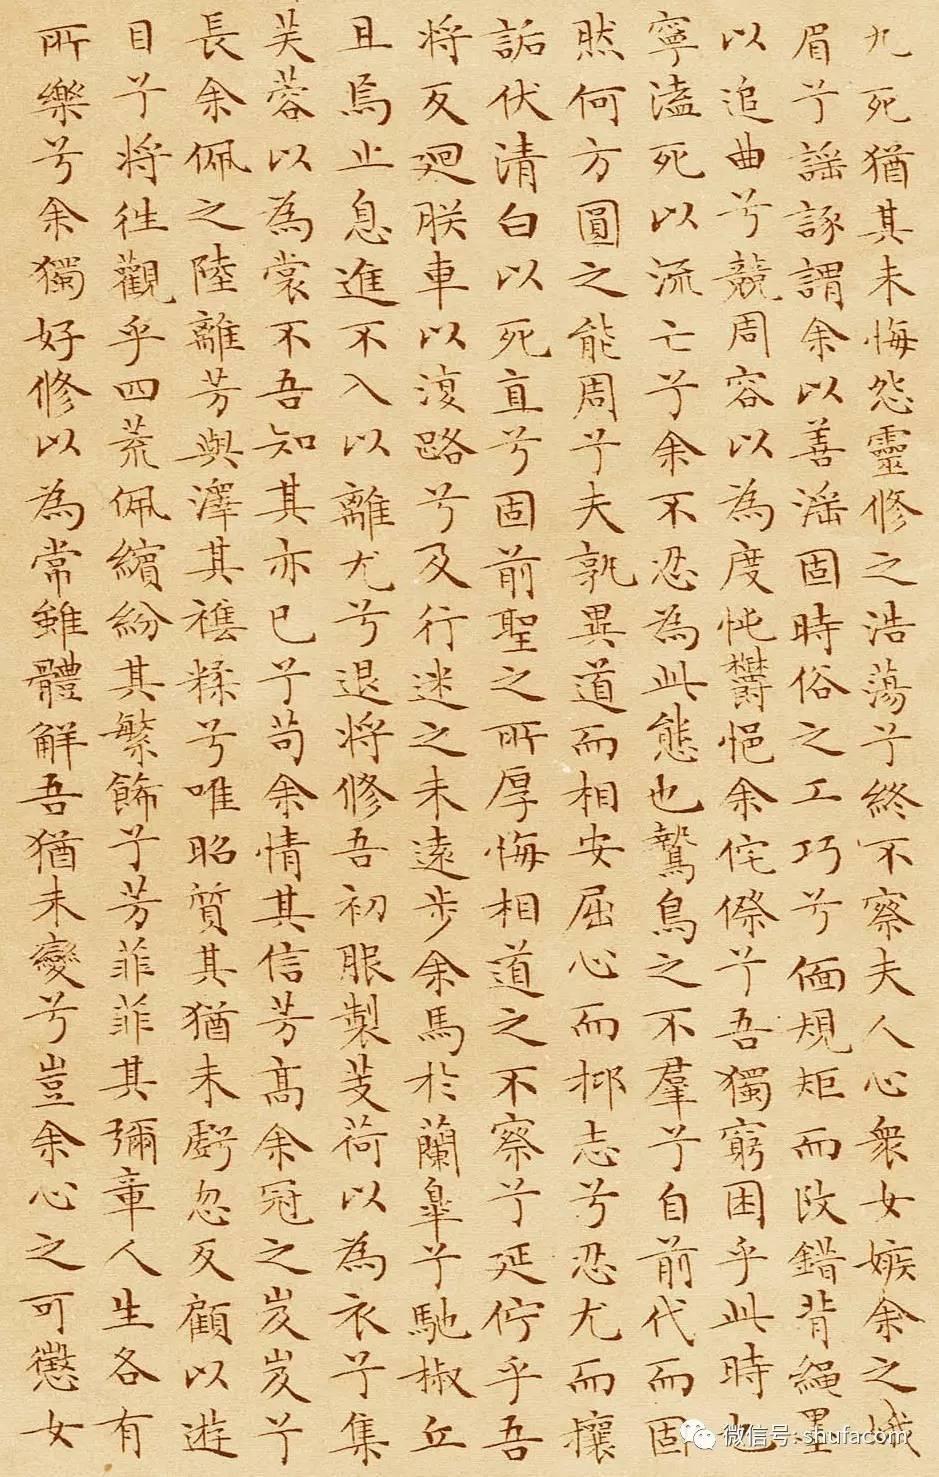 九死猶其未悔怨靈修之浩蕩兮終不察夫人心衆女嫉余之娥
眉兮謠諑謂余以善淫固時俗之工巧兮偭規矩而改錯背繩墨
以追曲兮競周容以為度忳鬱悒余侘傺兮吾獨窮困乎此時也
寧溘死以流亡兮余不忍為此態也鷙鳥之不羣兮自前代而固
然何方圓之能周兮夫孰異道而相安屈心而抑志兮忍尤而攘
詬伏清白以死直兮固前聖之所厚悔相道之不察兮延佇乎吾
將反迴朕車以復路兮及行迷之未遠步余馬於蘭皋兮馳椒丘
且焉止息進不入以離尤兮退將修吾初服製芰荷以為衣兮集
芙蓉以為裳不吾知其亦已兮苟余情其信芳高余冠之岌岌兮
長余佩之陸離芳與澤其雜糅兮唯昭質其猶未虧忽反顧以遊
目兮將往觀乎四荒佩繽紛其繁飾兮芳菲菲其彌章人生各有
所樂兮余獨好修以為常雖體解吾猶未變兮豈余心之可懲女
微信号: shufacom